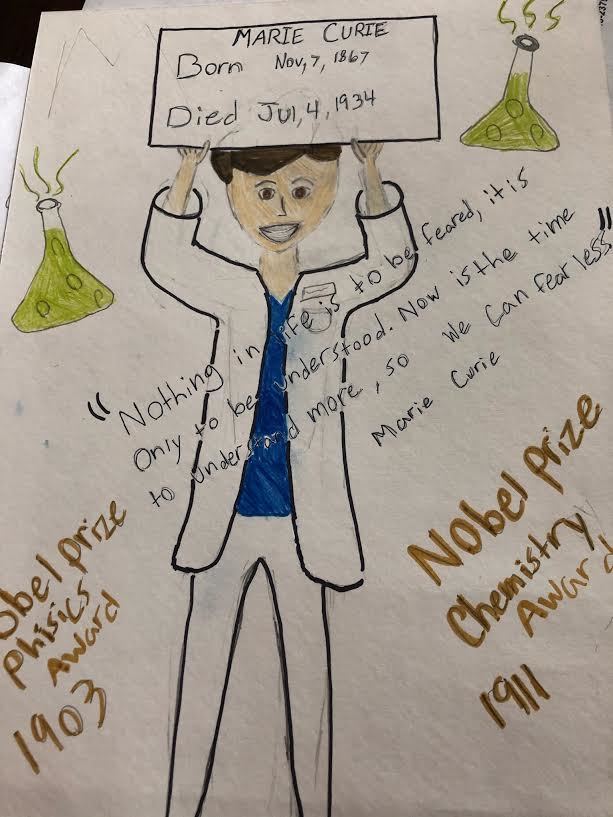 MARIE CURIE
Born Nov, 7, 1867
Died Jul, 4, 1934
"Nothing in life is to be feared, it is
Only to be understood. Now is the time
to understand more, so We Can fear less"
Marie Curie
obel prize
Phisics
Award
1903
Nobel prize
Chemistry
Award
1911